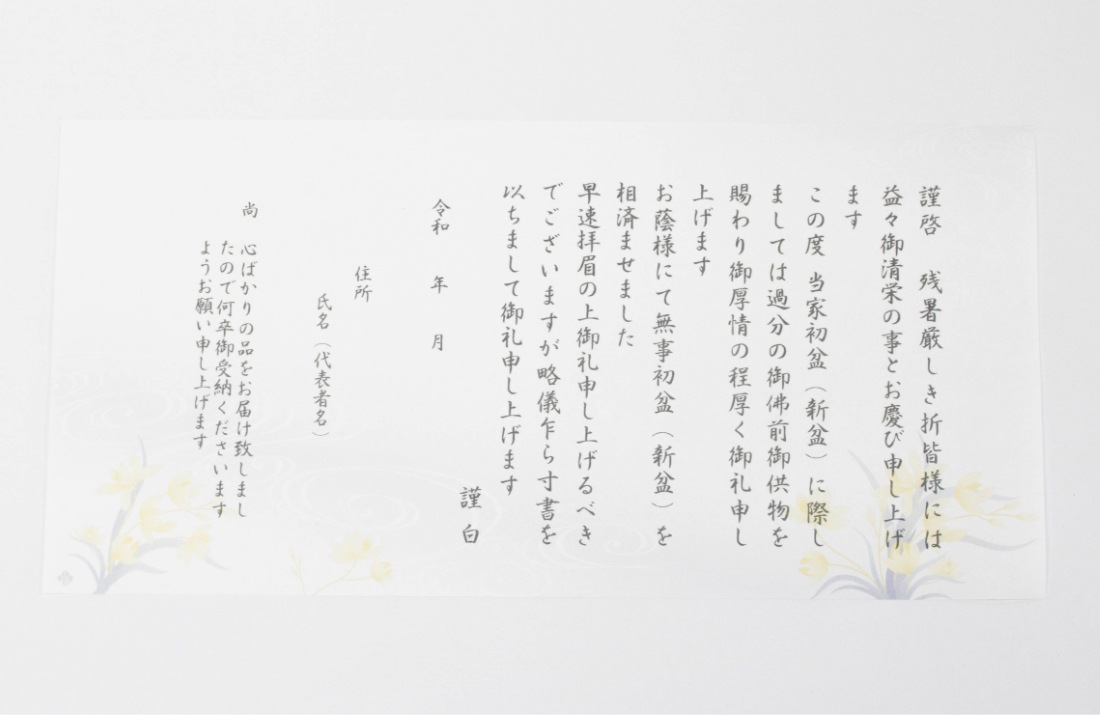 謹啓　残暑厳しき折皆様には
益々御清栄の事とお慶び申し上げ
ます
この度 当家初盆（新盆）に際し
ましては過分の御佛前御供物を
賜わり御厚情の程厚く御礼申し
上げます
お蔭様にて無事初盆（新盆）を
相済ませました
早速拝眉の上御礼申し上げるべき
でございますが略儀乍ら寸書を
以ちまして御礼申し上げます
謹白
令和　年　月
住所
氏名（代表者名）
尚　心ばかりの品をお届け致しまし
たので何卒御受納くださいます
ようお願い申し上げます